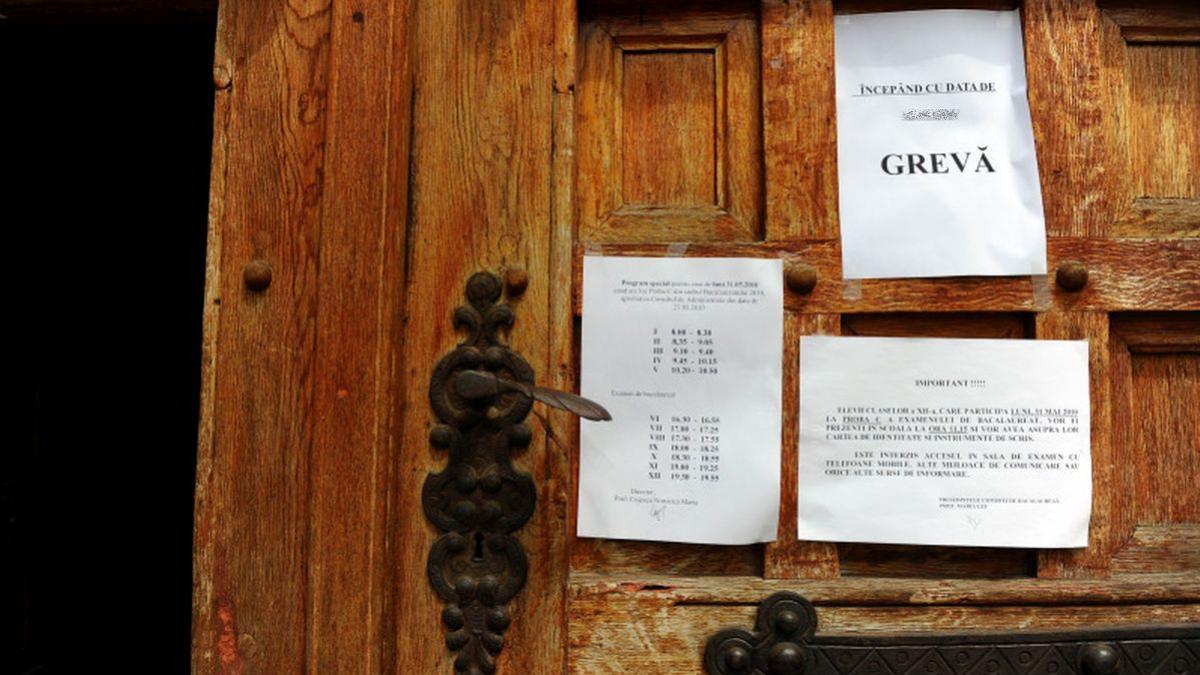 ÎNCEPÂND CU DATA DE
GREVĂ
Program special pentru ziua de luni 31.05.2010
aprobat in Consiliul de Administratie din data de
27.05.2010
I 8.00 - 8.30
II 8,35 - 9.05
III 9.10 - 9.40
IV 9.45 - 10.15
V 10.20 - 10.50
Examen de bacalaureat
VI 16.30 - 16.55
VII 17.00 - 17.25
VIII 17.30 - 17.55
IX 18.00 - 18.25
X 18.30 - 18.55
XI 19.00 - 19.25
XII 19.30 - 19.55
Director,
Prof.
IMPORTANT !!!!!
ELEVII CLASELOR a XII-a, CARE PARTICIPA LUNI, 31 MAI 2010
LA PROBA C A EXAMENULUI DE BACALAUREAT, VOR FI
PREZENTI IN SCOALA LA ORA 11,15 SI VOR AVEA ASUPRA LOR
CARTEA DE IDENTITATE SI INSTRUMENTE DE SCRIS.
ESTE INTERZIS ACCESUL IN SALA DE EXAMEN CU
TELEFOANE MOBILE, ALTE MIJLOACE DE COMUNICARE SAU
ORICE ALTE SURSE DE INFORMARE.
PRESEDINTELE COMISIEI DE BACALAUREAT,
PROF.